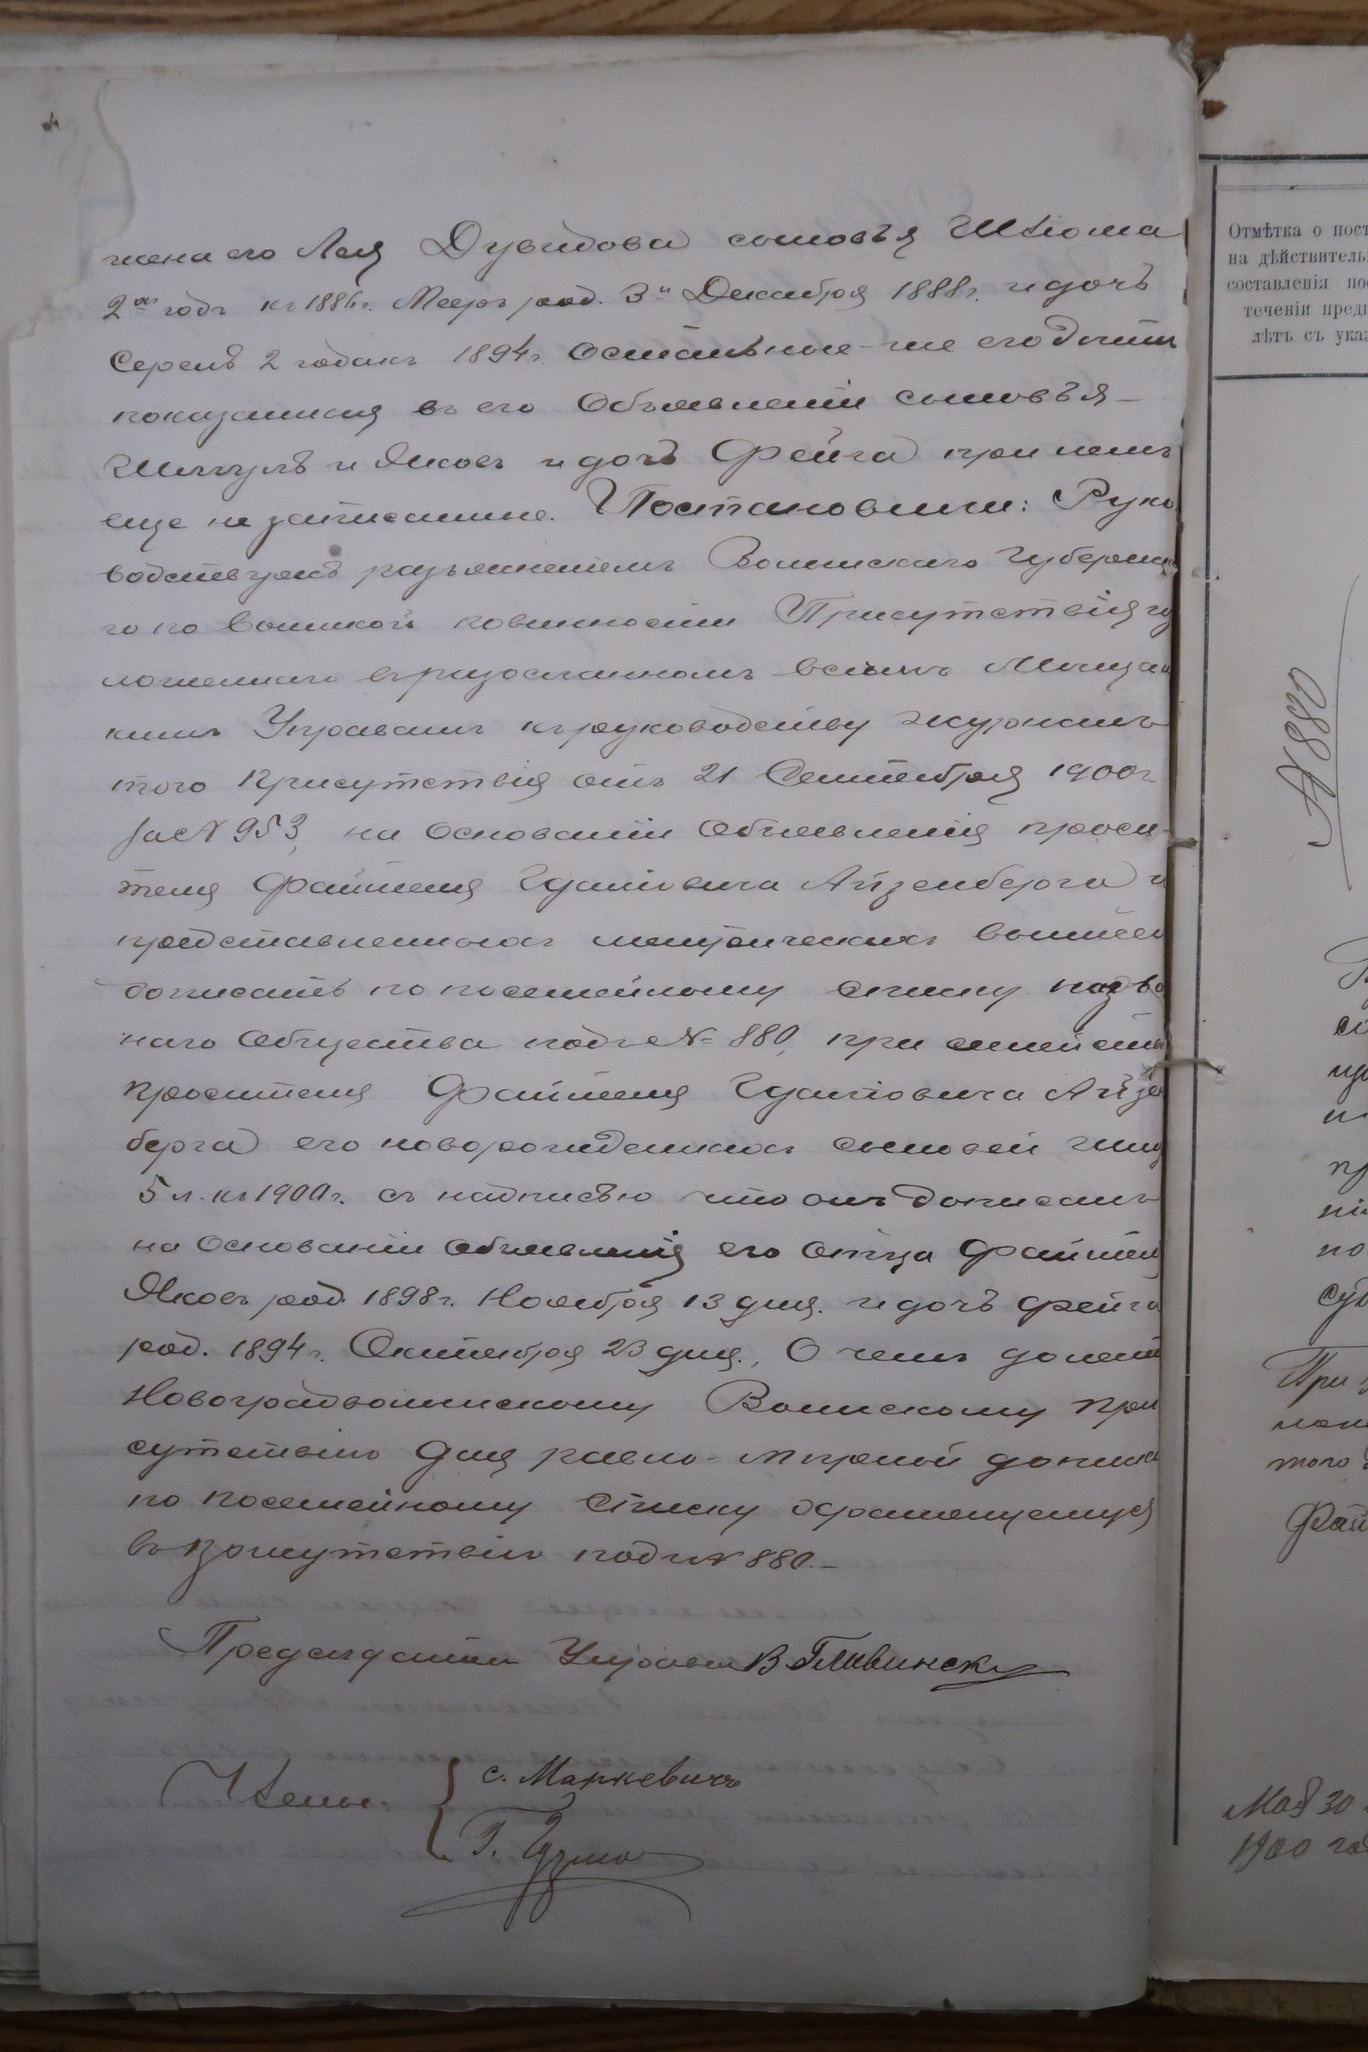 жена его Лея Дувидова сыновъя Шлiома
2 годъ къ 1886г. Мееръ род. 3 Декабря 1888г. и дочь
Серелъ 2 годакъ 1894г. Остальные-же его дѣти
показанныя въ его Объявленiи сыновъя -
Шмулъ и Якось и дочь Фейга при немъ
еще не записанные. Постановили: Руко
водствуясь разъясненiемъ Волынскаго Губернска
го по воинской повинности Присутствiя из
ложеннаго въ разосланномъ всѣмъ Мѣщан
кимъ Управамъ къ руководству журналѣ
того Присутствiя отъ 21 Сентября 1900г
за № 953, на основанiи объявленiя проси-
теля Файшеля Гдалiовича Айзенберга и
представленныхъ метрическихъ выписей
дописать по посемейному списку назва
наго общества подъ № 880, при семействѣ
просителя Файшеля Гдалiовича Айзен
берга его новорожденныхъ сыновей
5 л. къ 1900г. съ надписью что онъ дописанъ
на основанiи объявленiя его отца Файшеля
Якось род. 1898г. Ноября 13 дня. и дочь Фейга
род. 1894г. Октября 23 дня., О чемъ донести
Новоградволынскому Воинскому При
сутствiю для равно-мѣрной дописки
по посемейному списку хранящемуся
въ присутствiи подъ № 880.-
Предсѣдатель Управы В Гливинскiй
Члены: { С. Маркевичъ
Г.
Отмѣтка о пост
на дѣйствитель
составленiя по
теченiи пред
лѣтъ съ ука
№ 880
При
того
Фай
Мая 30
1900 го